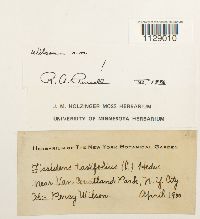 1129010
Wilson n.m.
!
R. A. Pursell
J. M. HOLZINGER MOSS HERBARIUM
UNIVERSITY OF MINNESOTA HERBARIUM
HERBARIUM OF THE NEW YORK BOTANICAL GARDEN
Fissidens taxifolius (L.) Hedw.
Near Van Cortland Park, N.Y. City
Percy Wilson April 1900